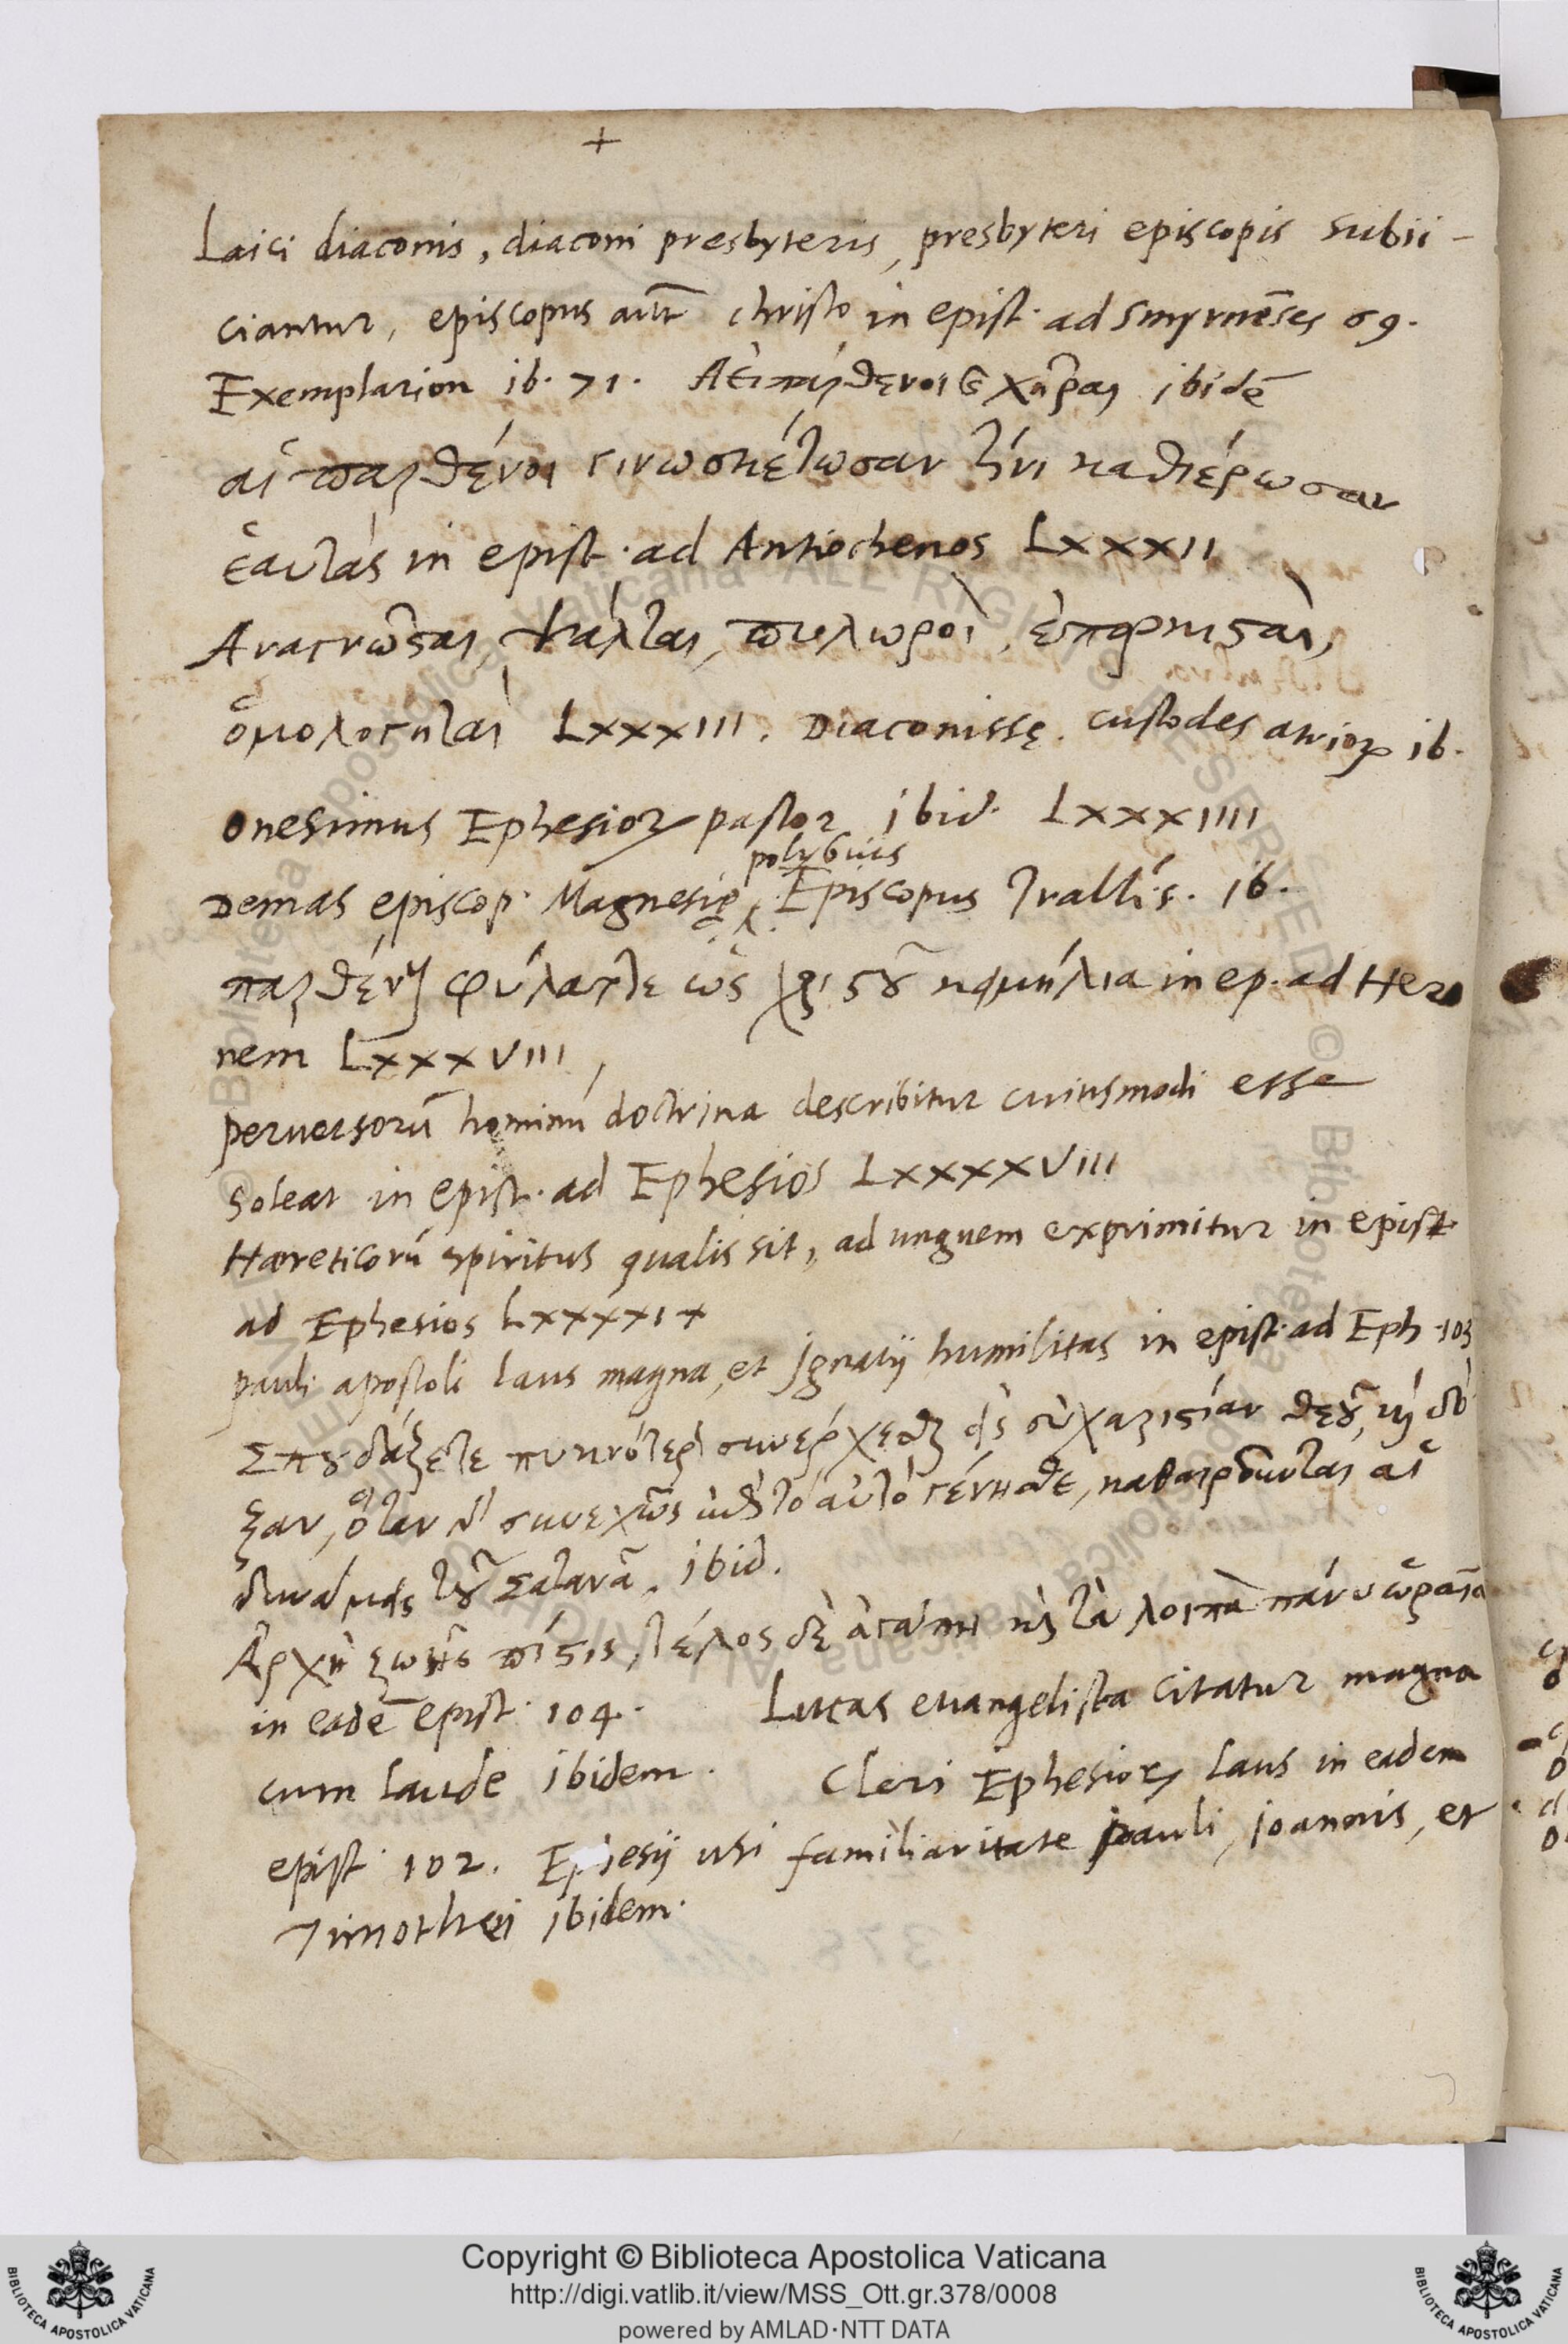 +
Laici diaconis, diaconi presbyteris, presbyteri episcopis subii-
ciantur, episcopus aut̄ christo in epist. ad Smyrnēses 69.
Exemplarion ib. 71. Ἀειπάρθενοι καὶ χῆραι ibidē
αἱ παρθένοι γινωσκέτωσαν τίνι καθιέρωσαν
ἑαυτάς in epist. ad Antiochenos LXXXII
Ἀναγνῶσται, ψάλται, πυλωροὶ, ἐπορκισταὶ,
ὁμολογηταὶ LXXXIII. Diaconissę. custodes atrioꝝ ib.
Onesimus Ephesioꝝ pastor ibid. LXXXIIII
polybius
Demas episcop. Magnesię Episcopus Trallis. ib.
παρθένους φύλαττε ὡς χριστοῦ κειμήλια in ep. ad Hero
nem LXXXVIII,
peruersorū hominū doctrina describitur cuiusmodi esse
soleat in epist. ad Ephesios LXXXXVIII
Hæreticorū spiritus qualis sit, ad unguem exprimitur in epist.
ad Ephesios LXXXXIX
pauli apostoli laus magna, et Ignatij humilitas in epist. ad Eph. 103
Σπουδάζετε πυκνότερον συνέρχεσθαι εἰς εὐχαριστίαν θεοῦ, καὶ δό
ξαν, ὅταν γὰρ συνεχῶς ἐπὶ τὸ αὐτὸ γένησθε, καθαιροῦνται αἱ
δυνάμεις τοῦ Σατανᾶ. ibid.
Ἀρχὴ ζωῆς πίστις, τέλος δὲ ἀγάπη καὶ τὰ λοιπὰ πάνυ ὡραῖα
in eadē epist. 104. Lucas euangelista citatur magna
cum laude ibidem. Cleri Ephesioꝝ laus in eadem
epist. 102. Ephesij usi familiaritate pauli, joannis, et
Timothei ibidem.
Copyright © Biblioteca Apostolica Vaticana
http://digi.vatlib.it/view/MSS_Ott.gr.378/0008
powered by AMLAD·NTT DATA
BIBLIOTECA APOSTOLICA VATICANA
BIBLIOTECA APOSTOLICA VATICANA